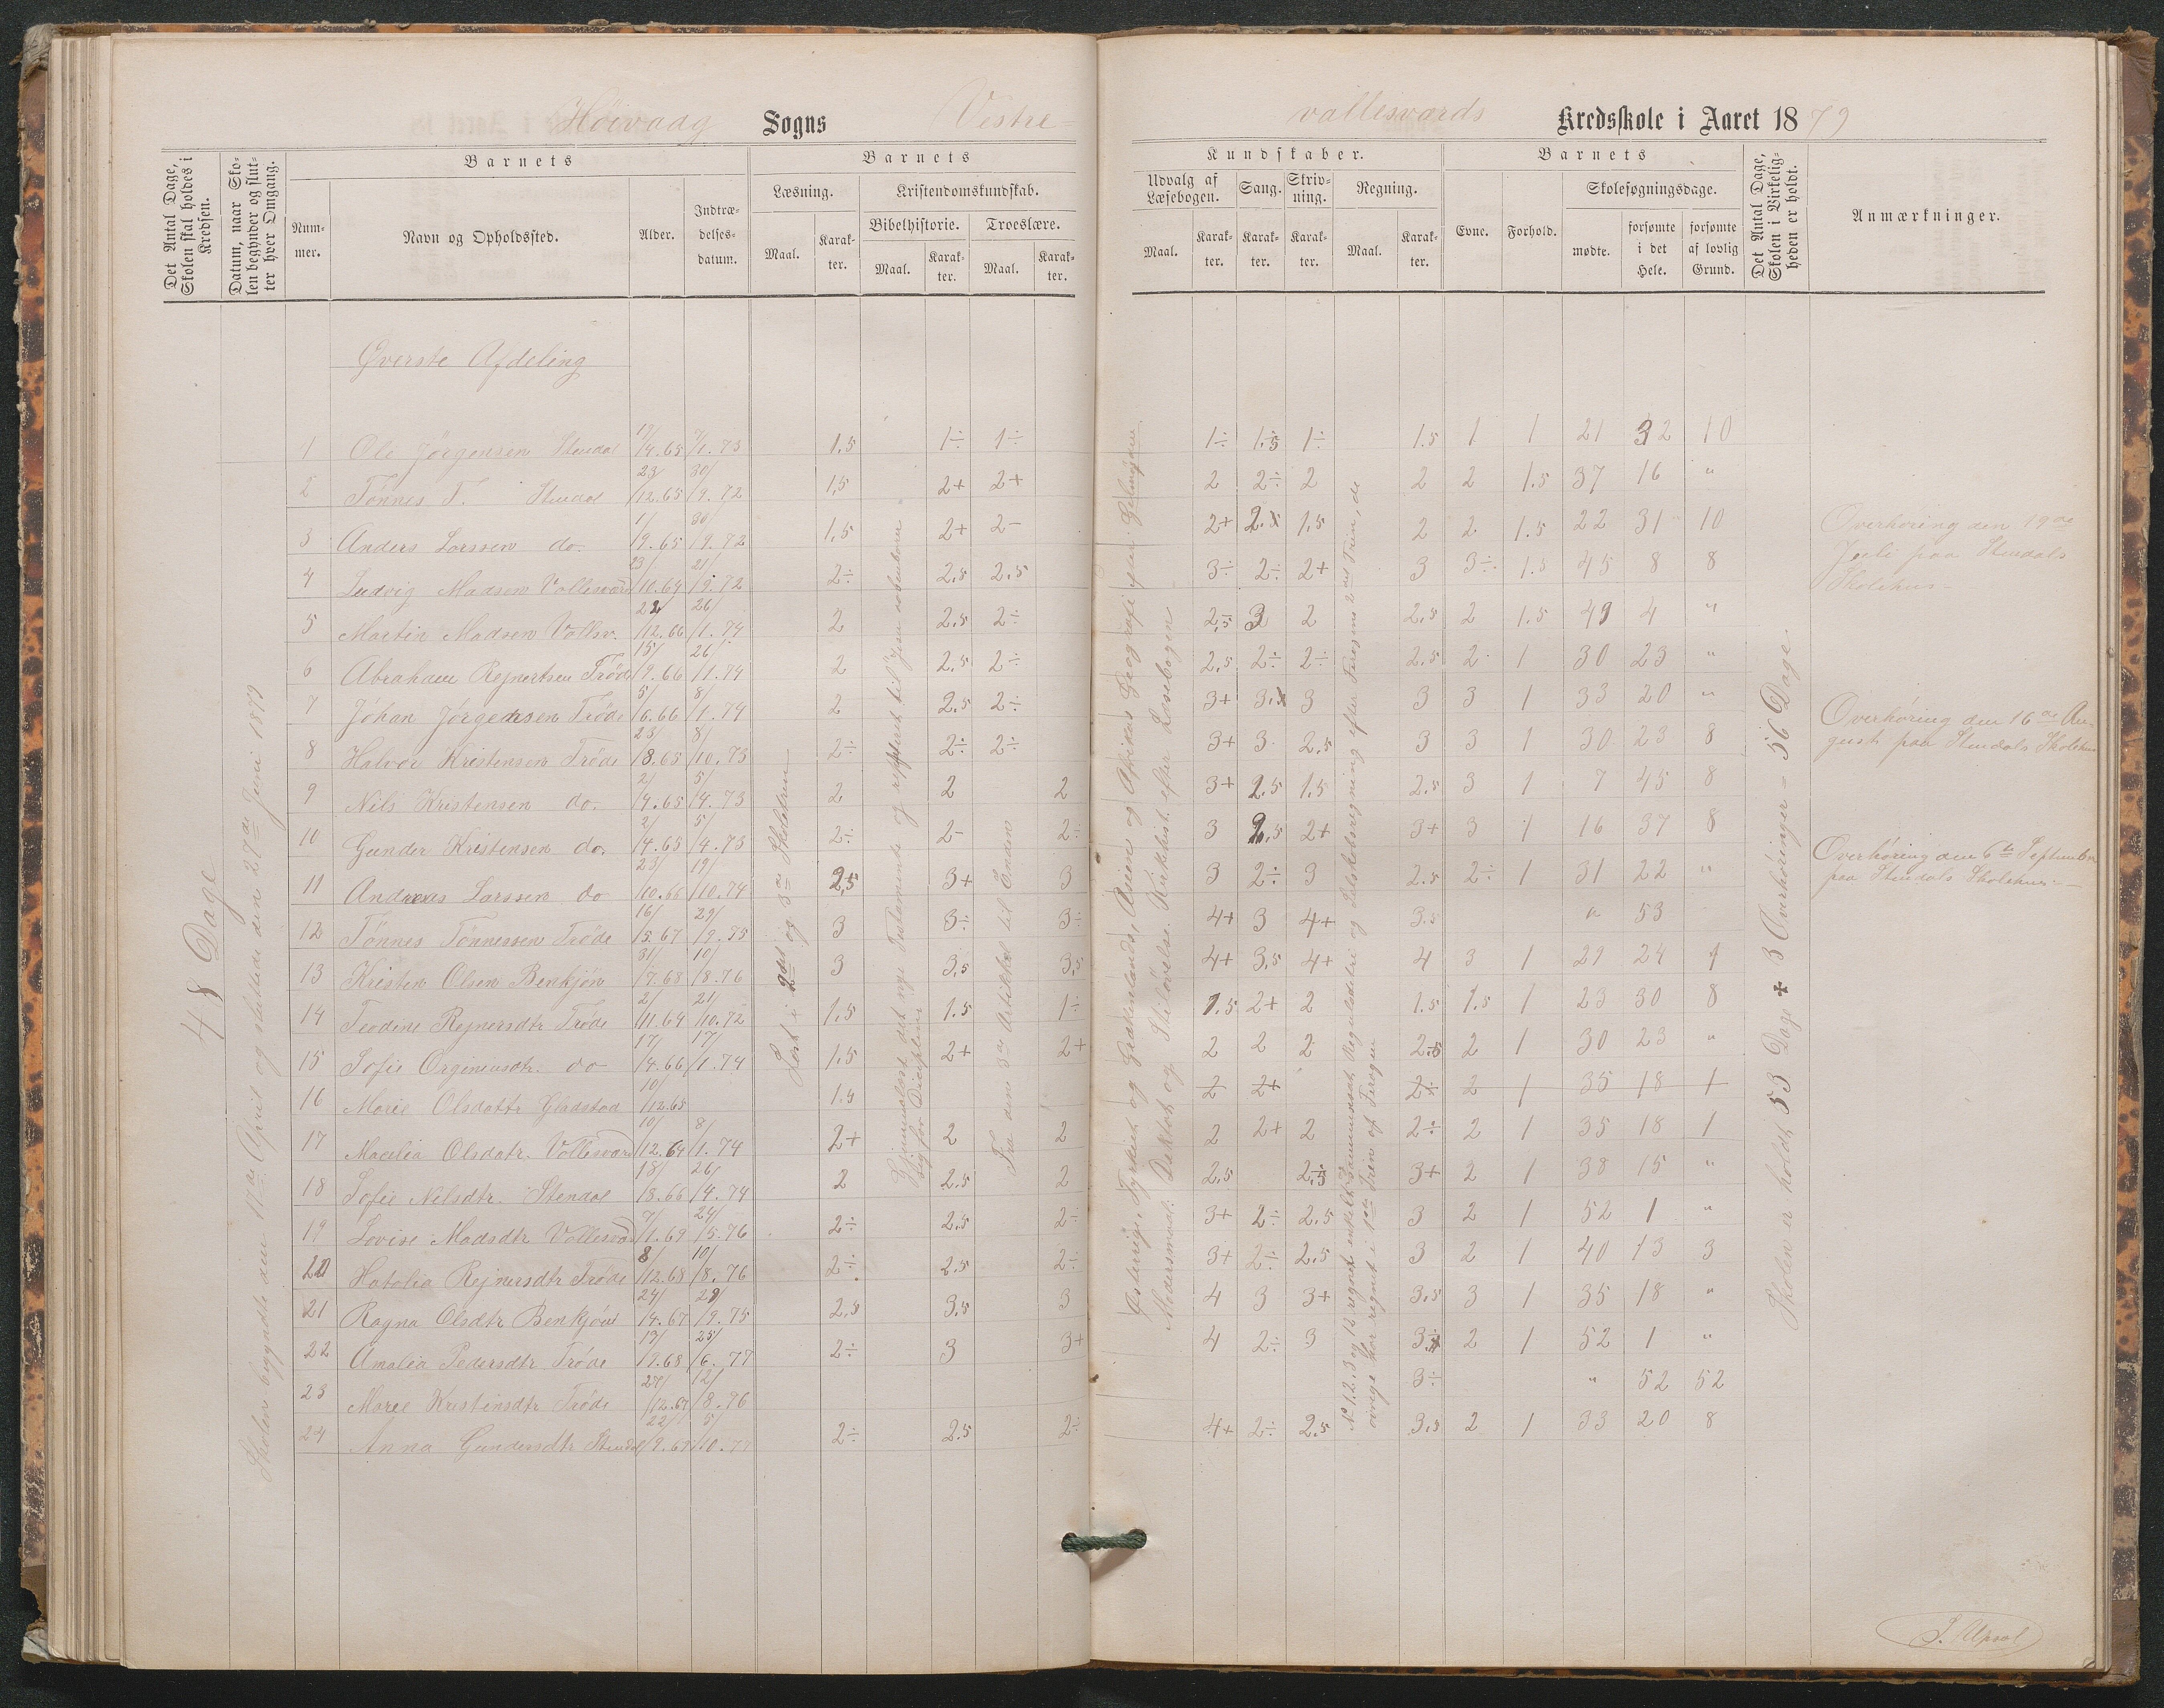 Høivaag Sogns Vestre-
vallesvards Kredsskole i Aaret 1879
Det Antal Dage, Skolen skal holdes i Kredsen.
Datum, naar Skolen begynder og slutter hver Omgang.
Barnets
Nummer.
Navn og Opholdssted.
Alder.
Indtrædelsesdatum.
Barnets
Læsning.
Kristendomskundskab.
Bibelhistorie.
Troeslære.
Maal. Karakter. Maal. Karakter. Maal. Karakter.
Kundskaber.
Udvalg af Læsebogen.
Sang.
Skrivning.
Regning.
Maal. Karakter. Karakter. Karakter. Maal. Karakter.
Barnets
Evne.
Forhold.
Skolesøgningsdage.
mødte.
forsømte i det Hele.
forsømte af lovlig Grund.
Det Antal Dage, Skolen i Virkeligheden er holdt.
Anmærkninger.
48 Dage
Skolen begyndte den 17de April og sluttede den 27de Juni 1879
Læst i 2det og 3die Skoletrin
Fra den 3die Artikkel til Enden
Østerrig, Tyrkiet og Grækenlands, Asien og Afrikas Geografi
Modersmaal: Diktat og Stiløvelse. Kirkehist. efter Læsebogen
Skolen er holdt 53 Dage + 3 Overhøringer = 56 Dage
Øverste Afdeling
1 Ole Jørgensen Stendal 17/4.65 7/1.73 1,5 1÷ 1÷ 1÷ 1,5 1÷ 1.5 1 1 21 32 10
2 Tönnes T. Stendal 23/12.65 30/9.72 1,5 2+ 2+ 2 2÷ 2 2 2 1.5 37 16 "
3 Anders Larssen do. 1/9.65 30/9.72 1,5 2+ 2- 2+ 2 1,5 2 2 1.5 22 31 10
4 Ludvig Madsen Vallesvard 23/10.64 21/9.72 2÷ 2,5 2,5 3÷ 2÷ 2+ 3 3÷ 1.5 45 8 8
5 Martin Madsen Vallsv. 22/12.66 26/1.74 2 2,5 2÷ 2,5 3 2 2,5 2 1.5 49 4 "
6 Abraham Rejnertsen Tröde 15/9.66 26/1.74 2 2,5 2÷ 2,5 2÷ 2÷ 2.5 2 1 30 23 "
7 Johan Jörgensen Tröde 5/6.66 8/1.74 2 2,5 2÷ 3+ 3 3 3 3 1 33 20 "
8 Halvor Kristensen Tröde 23/8.65 8/10.73 2÷ 2÷ 2÷ 3+ 3 2,5 3 3 1 30 23 8
9 Nils Kristensen do. 2/4.65 5/4.73 2 2 2 3+ 2.5 1.5 2.5 3 1 7 45 8
10 Gunder Kristensen do. 2/4.65 5/4.73 2÷ 2- 2÷ 3 2,5 2+ 3+ 3 1 16 37 8
11 Andreas Larssen do 23/10.66 19/10.74 2,5 3+ 3 3 2÷ 3 2.5 2÷ 1 31 22 "
12 Tönnes Tönnessen Tröde 16/5.67 29/9.75 3 3÷ 3÷ 4+ 3 4+ 3.5 " 53
13 Kristen Olsen Benkjön 31/7.68 10/8.76 3 3,5 3,5 4+ 3,5 4+ 4 3 1 29 24 1
14 Teodine Rejnersdtr Tröde 2/11.64 21/10.72 1,5 1.5 1÷ 1.5 2+ 2 1.5 1.5 1 23 30 8
15 Sofie Orginiusdtr. do 17/4.66 17/1.74 1,5 2+ 2+ 2 2 2 2,5 2 1 30 23 "
16 Marie Olsdattr Gladstad 10/12.65 1.5 2 2+ 2÷ 2 1 35 18 1
17 Macelia Olsdatr. Vallesvard 10/12.64 8/1.74 2+ 2 2 2 2+ 2 2÷ 2 1 35 18 1
18 Sofie Nilsdtr. Stendal 18/8.66 26/4.74 2 2.5 2 2,5 2,5 3+ 2 1 38 15 "
19 Lovise Madsdtr Vallesvard 7/1.69 24/5.76 2÷ 2.5 2÷ 3+ 2÷ 2.5 3 2 1 52 1 "
20 Hatolia Rejnersdtr Tröde 8/12.68 10/8.76 2÷ 2.5 2÷ 3+ 2÷ 2,5 3 2 1 40 13 3
21 Ragna Olsdtr Benkjön 24/4.67 29/9.75 2,5 3,5 3 4 3 3+ 3,5 3 1 35 18 "
22 Amalia Pedersdtr Tröde 19/9.68 25/6.77 2÷ 3 3+ 4 2÷ 3 3÷ 2 1 52 1 "
23 Marie Kristensdtr Tröde 27/12.67 12/8.76 3÷ " 52 52
24 Anna Gundersdtr Stendal 22/9.69 5/10.77 2÷ 2.5 2÷ 4+ 2÷ 2.5 3,5 2 1 33 20 8
Overhøring den 19de
Juli paa Stendals
Skolehus-
Overhøring den 16de Au-
gust paa Stendals Skolehus
Overhøring den 6te September
paa Stendals Skolehus-